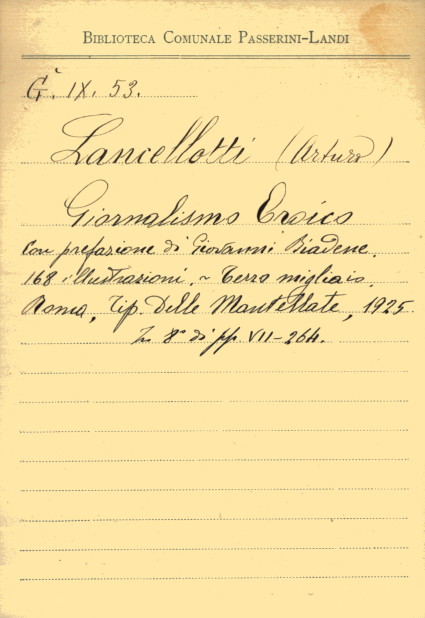 BIBLIOTECA COMUNALE PASSERINI-LANDI
G. IX. 53.
Lancellotti (Arturo)
Giornalismo Eroico
Con prefazione di Giovanni Biadene.
168 illustrazioni. ~ Terzo migliaio.
Roma, Tip. Delle Mantellate, 1925.
In 8° di pp. VII-264.